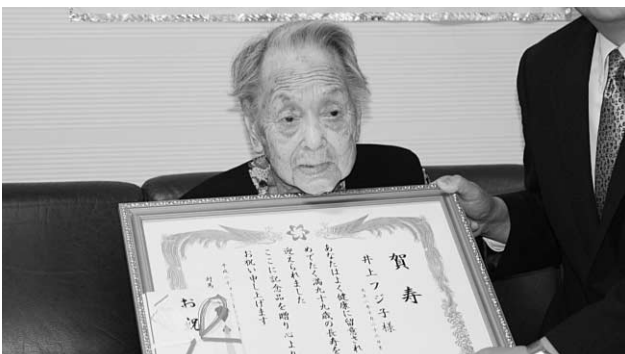 賀寿
井上フジ子様
あなたはよく健康に留意され
めでたく満九十九歳の長寿を
迎えられました
ここに記念品を贈り心より
お祝い申し上げます
お祝